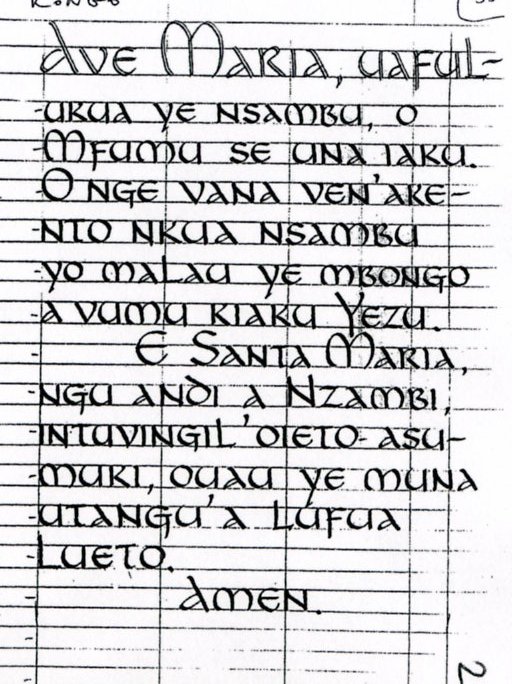 KONGO
Ave Maria, uaful-
ukua ye nsambu, o
Mfumu se una iaku.
O nge vana ven'ake-
nto nkua nsambu
yo malau ye mbongo
a vumu kiaku Yezu.
E Santa Maria,
ngu andi a Nzambi,
intuvingil'oieto asu-
muki, ouau ye muna
utangu'a lufua
lueto.
Amen.
2